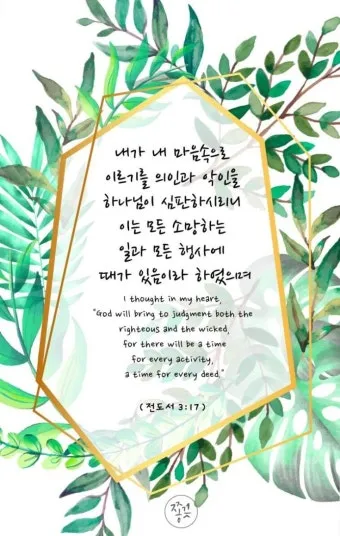 내가 내 마음속으로
이르기를 의인과 악인을
하나님이 심판하시리니
이는 모든 소망하는
일과 모든 행사에
때가 있음이라 하였으며
I thought in my heart,
"God will bring to judgment both the
righteous and the wicked,
for there will be a time
for every activity,
a time for every deed."
(전도서 3:17)